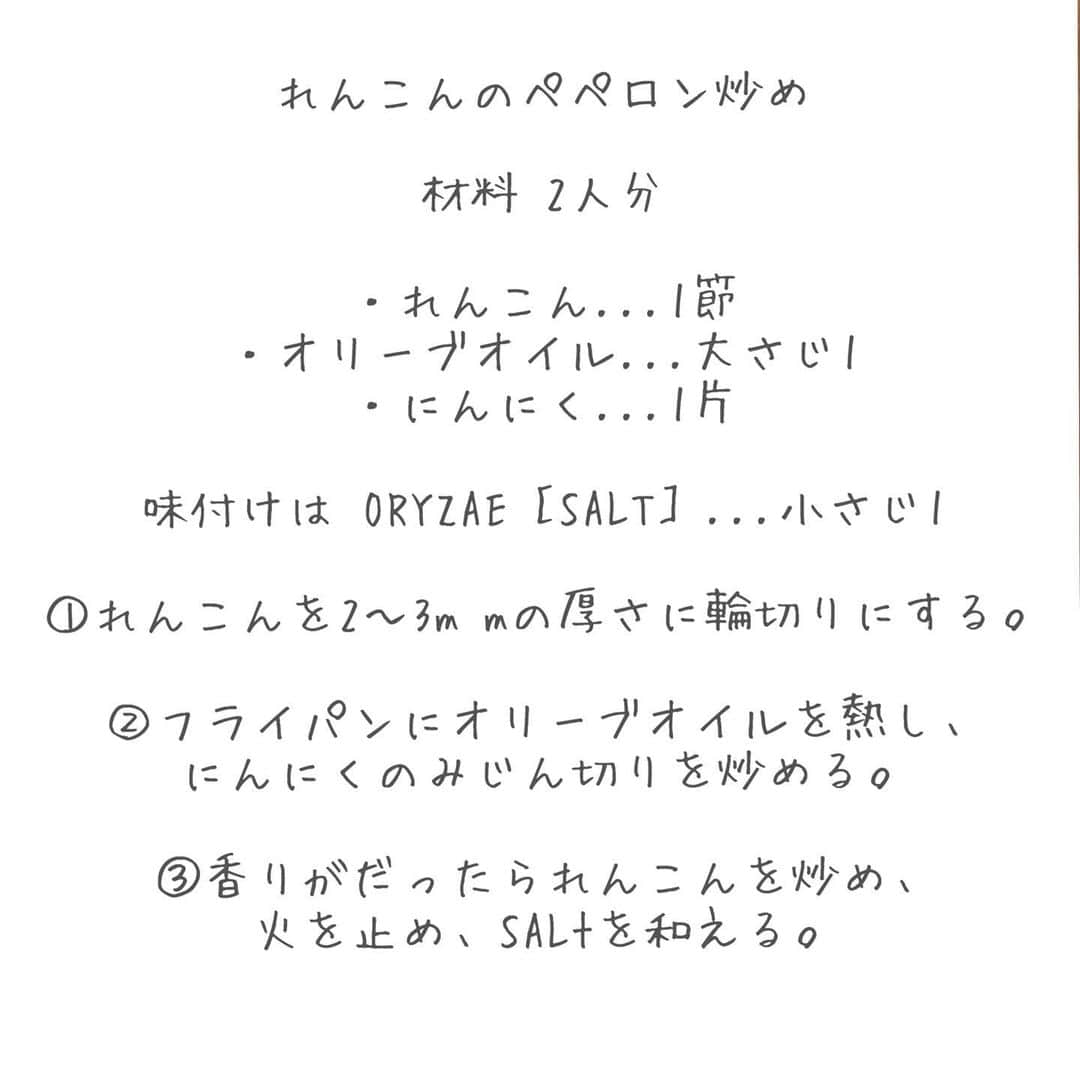 れんこんのペペロン炒め
材料 2人分
・れんこん...1節
・オリーブオイル...大さじ1
・にんにく...1片
味付けは ORYZAE [SALT] ...小さじ1
①れんこんを2〜3m mの厚さに輪切りにする。
②フライパンにオリーブオイルを熱し、
にんにくのみじん切りを炒める。
③香りがだったられんこんを炒め、
火を止め、SALtを和える。